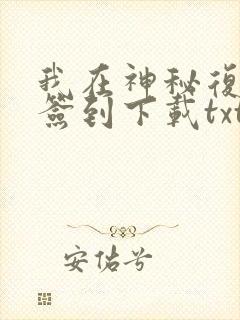 我在神秘復
簽到下載txt
安估兮